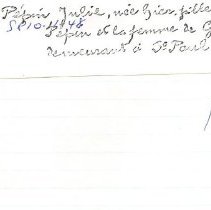 Pépin Julie, née hier, fille
SP10.H.48
Pépin et la femme de G
demeurant à St Paul